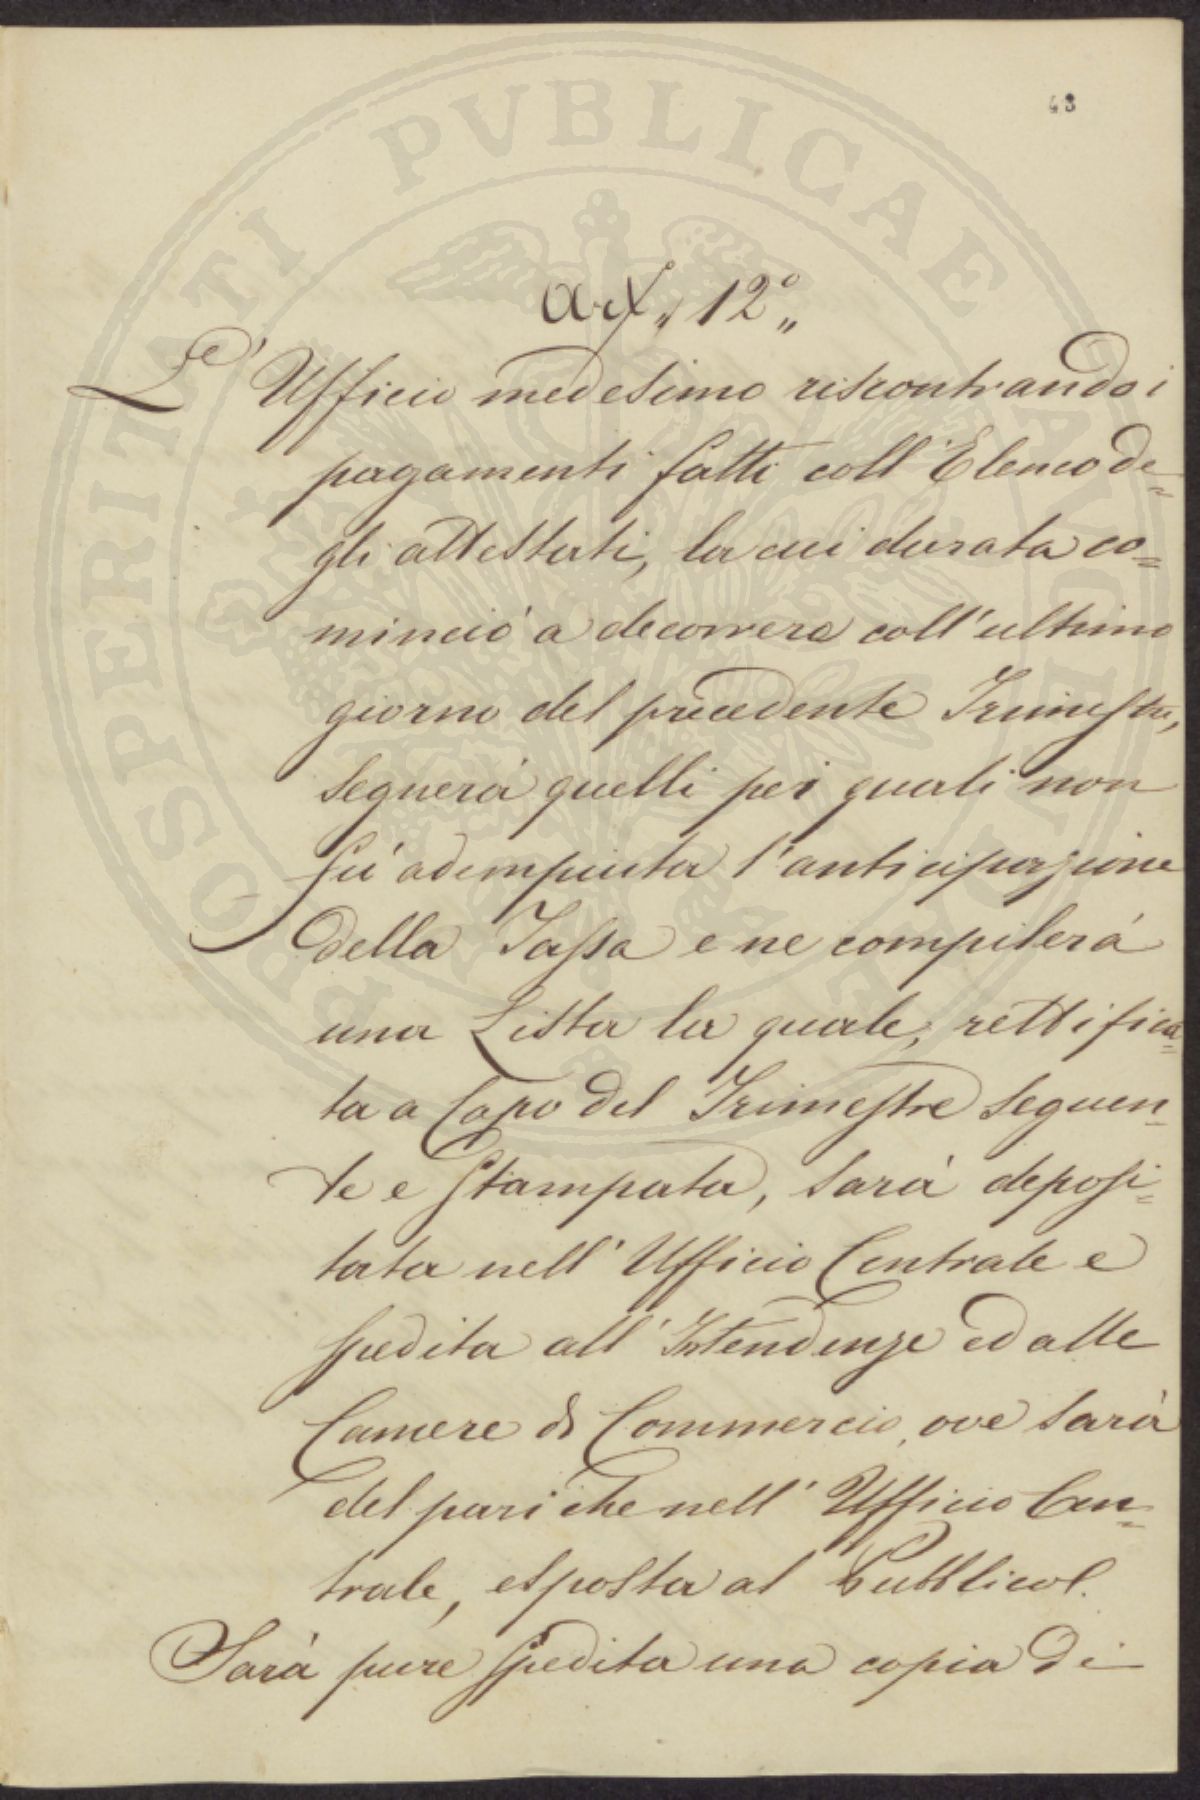 43
PROSPERITATI PVBLICAE AVGENDAE
Art. 12°
L'Ufficio medesimo riscontrando i
pagamenti fatti coll'Elenco de=
gli attestati, la cui durata co=
minciò a decorrere coll'ultimo
giorno del precedente Trimestre,
segnerà quelli pei quali non
fù adempiuta l'anticipazione
della Tassa e ne compilerà
una Lista la quale, rettifica=
ta a Capo del Trimestre seguen=
te e Stampata, sarà deposi=
tata nell'Ufficio Centrale e
spedita all'Intendenze ed alle
Camere di Commercio, ove sarà
del pari che nell'Ufficio Cen=
trale, esposta al Pubblico.
Sarà pure spedita una copia di